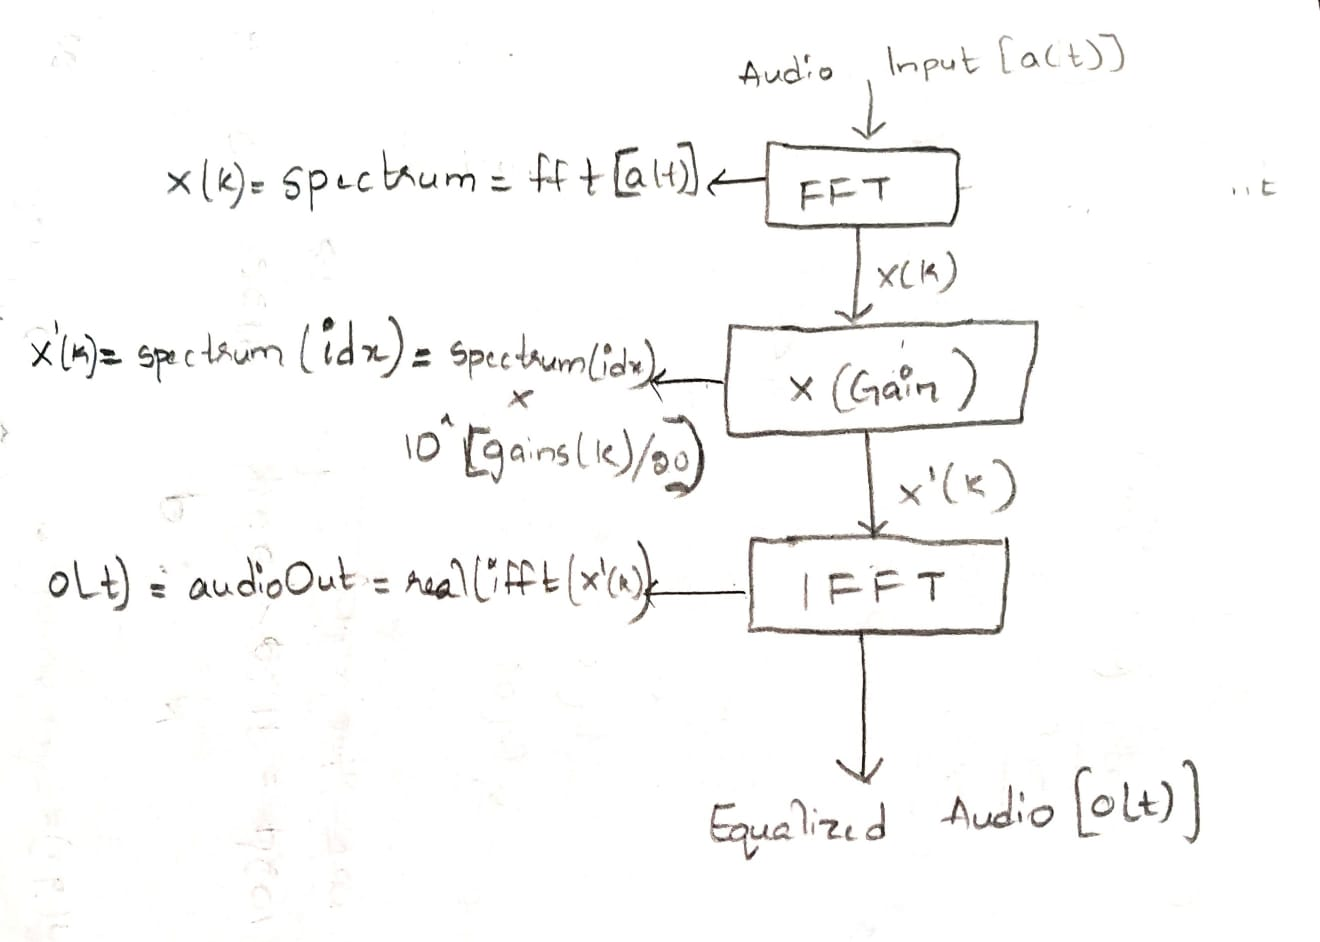 Audio Input [a(t)]
x(k) = spectrum = fft[a(t)]
FFT
x(k)
x'(k) = spectrum (idx) = spectrum(idx)
x
10^[gains(k)/20]
x (Gain)
x'(k)
o(t) = audioOut = real(ifft(x'(k))
IFFT
Equalized Audio [o(t)]